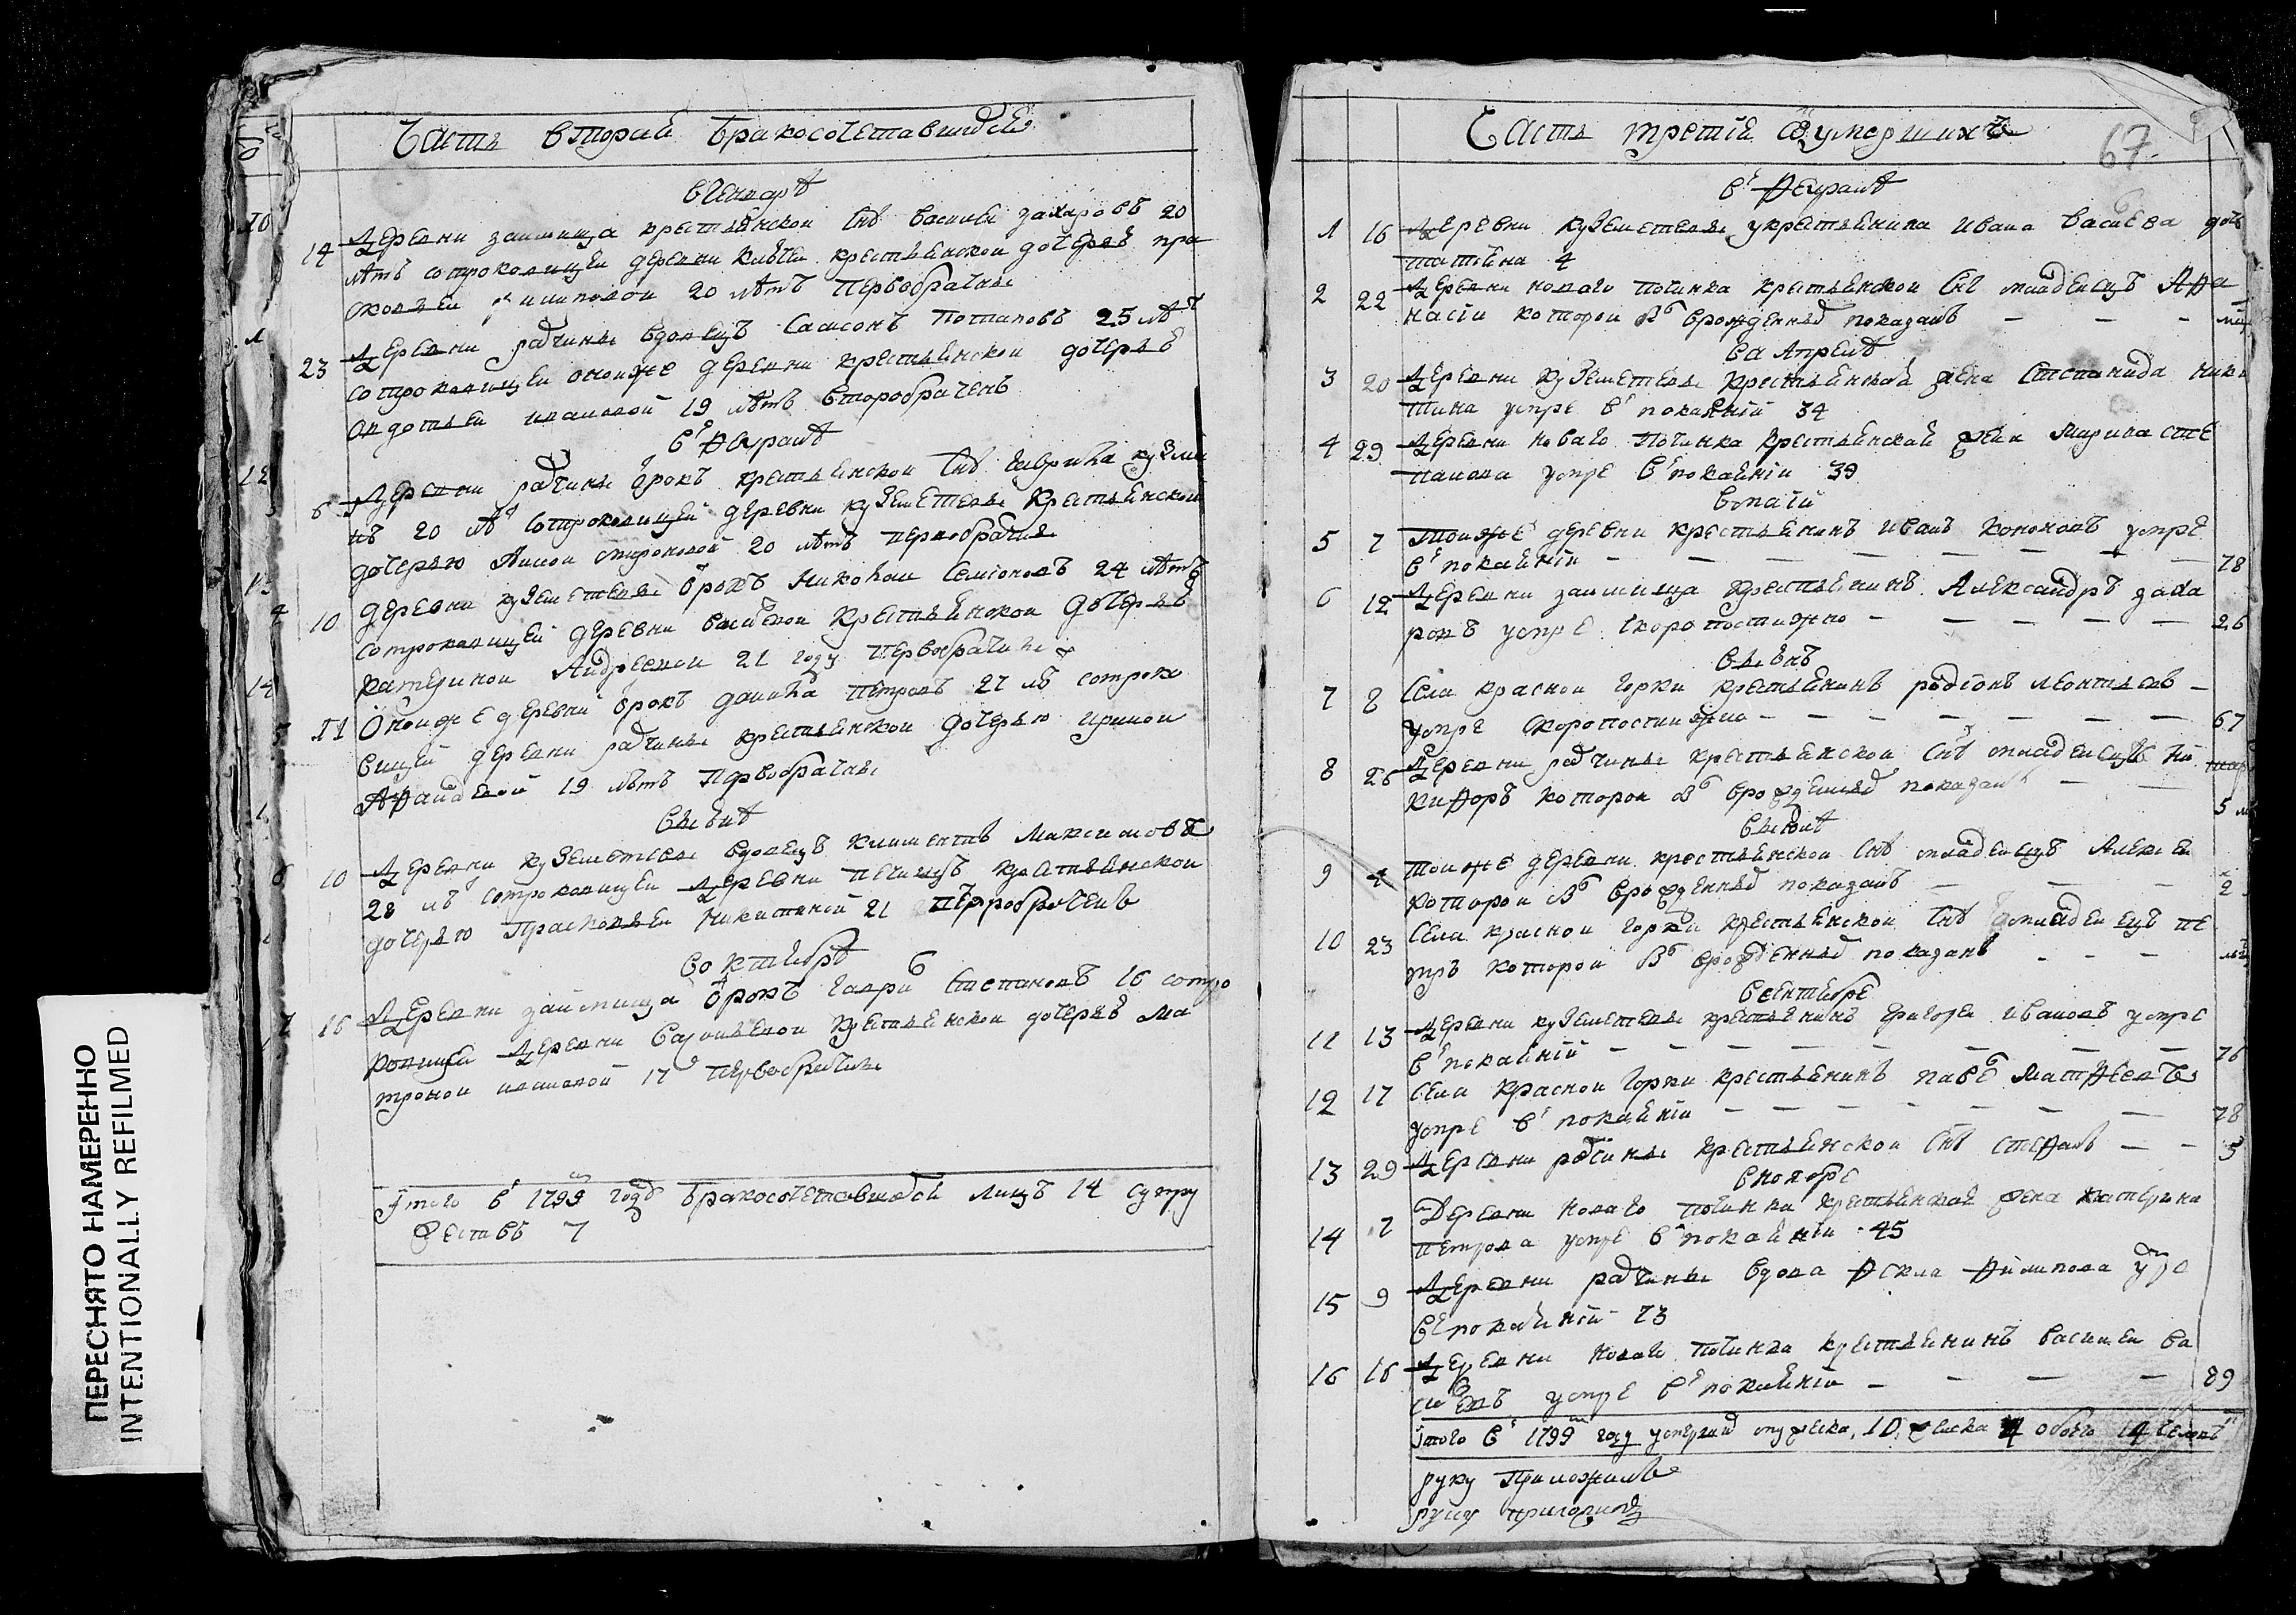 Часть вторая бракосочетавшихся
в генваре
14 Деревни займища крестьянской снъ василей захаровъ 20
летъ сотроковицей деревни крестьянской дочерью пра
сковьей филиповой 20 летъ первобрачны
23 Деревни радчины вдовецъ Самсонъ Потаповъ 25 ле
сотроковицей оноиже деревни крестьянской дочерью
Овдотьей ивановой 19 летъ второбраченъ
в феврале
6 Деревни радчины орокъ крестьянской снъ Гаврила кузми
нъ 20 ле сотроковицей деревни куземетевы крестьянской
дочерью Анной мироновой 20 летъ первобрачны
4 10 деревни куземетевы орокъ Николай Семионовъ 24 летъ
сотроковицей деревни крестьянской дочерью
катериной Андреевой 21 году первобрачны
5 11 Оноиже деревни орокъ данила петровъ 21 ле сотроко
вицей деревни радчины крестьянской дочерью ириной
Афанасевой 19 летъ первобрачны
6 10 Деревни куземетевы вдовецъ климентей Максимовъ
28 ле сотроковицей деревни крестьянской
дочерью Прасковьей Никитиной 21 первобраченъ
в октябре
7 16 Деревни займища орокъ гаври Степановъ 16 сотро
ковицей Деревни крестьянской дочерью Ма
троной ивановой 17 первобрачны
Итого в 1799 годе бракосочетавшихся лицъ 14 супру
жествъ 7
Часть третія оумершихъ
67
в феврале
1 16 Деревни куземетевы укрестьянина Ивана Васиева дочь
татияна 4
2 22 Деревни новаго починка крестьянской снъ младенецъ Афа
насіи которой въ врожденныхъ показанъ — — —
в Апреле
3 20 Деревни куземетевы крестьянская жена Степанида ники
тина умре в покаяніи 34
4 29 Деревни новаго починка крестьянская жена Марина сте
панова умре в покаяніи 39
в маіи
5 7 Тоиже деревни крестьянинъ иванъ кононовъ умре
в покаяніи — — — 78
6 12 Деревни займища крестьянинъ Александръ заха
ровъ умре скоропостижно — — — 26
в июне
7 8 Села красной горки крестьянинъ родіонъ леонтьевъ —
умре скоропостижно — — — 67
8 26 Деревни радчины крестьянской снъ младенецъ ни
кифоръ которой въ врожденныхъ показанъ — — 5
в июле
9 4 тоиже деревни крестьянской снъ младенецъ Алексей
которой въ врожденныхъ показанъ — — — 2
10 23 Села красной горки крестьянской снъ младенецъ пе
тръ которой въ врожденныхъ показанъ — — —
в сентябре
11 13 Деревни куземетевы крестьянинъ григорей ивановъ умре
в покаяніи — — — 76
12 17 Села красной горки крестьянинъ паве Матфеевъ
умре в покаяніи — — — 78
13 29 Деревни радчины крестьянской снъ стефанъ — — 3
в ноябре
14 7 Деревни новаго починка крестьянская жена катерина
петрова умре в покаяніи 45
15 9 Деревни радчины вдова Фекла Филипова умре
в покаяніи 73
16 16 Деревни новаго починка крестьянинъ василей ва
силевъ умре в покаяніи — — — 89
Итого в 1799 году умерших мужеска 10 женска 4 обоего 14 человъ
руку приложилъ
руку приложилъ
ПЕРЕСНЯТО НАМЕРЕННО
INTENTIONALLY REFILMED